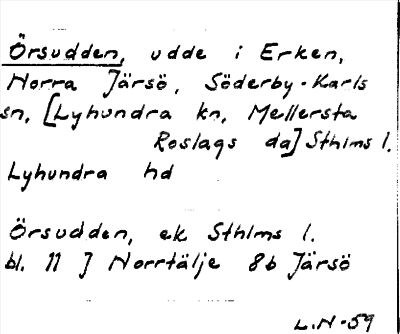 Örsudden, udde i Erken,
Norra Järsö, Söderby-Karls
sn, [Lyhundra kn, Mellersta
Roslags da] Sthlms l.
Lyhundra hd
Örsudden, ek Sthlms l.
bl. 11 J Norrtälje 8b Järsö
L.N-59